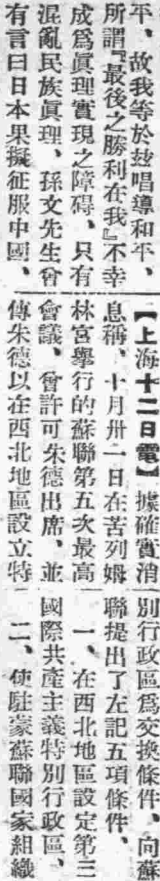 平、故我等於玆唱導和平、
所謂『最後之勝利在我』不幸
成爲眞理實現之障碍、只有
混亂民族眞理、孫文先生曾
有言曰日本果擬征服中國、
【上海十二日電】據確實消
息稱、十月卅一日在苦列姆
林宮舉行的蘇聯第五次最高
會議、曾許可朱德出席、並
傳朱德以在西北地區設立特
別行政區爲交換條件、向蘇
聯提出了左記五項條件、
一、在西北地區設定第三
國際共產主義特別行政區、
二、使駐蒙蘇聯國家組織